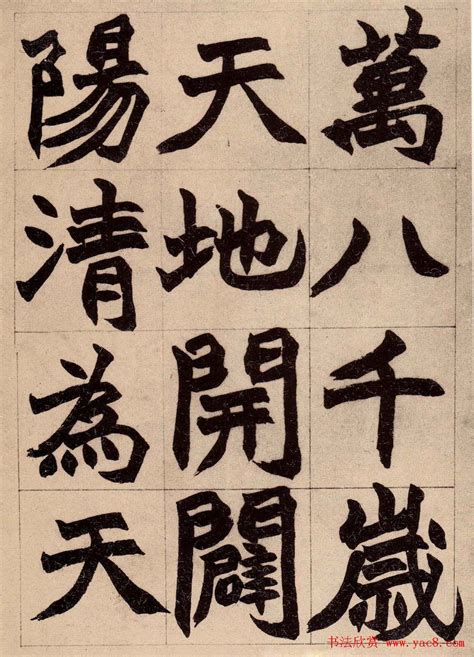 萬八千歲
天地開闢
陽清為天
书法欣赏 www.yac8.com